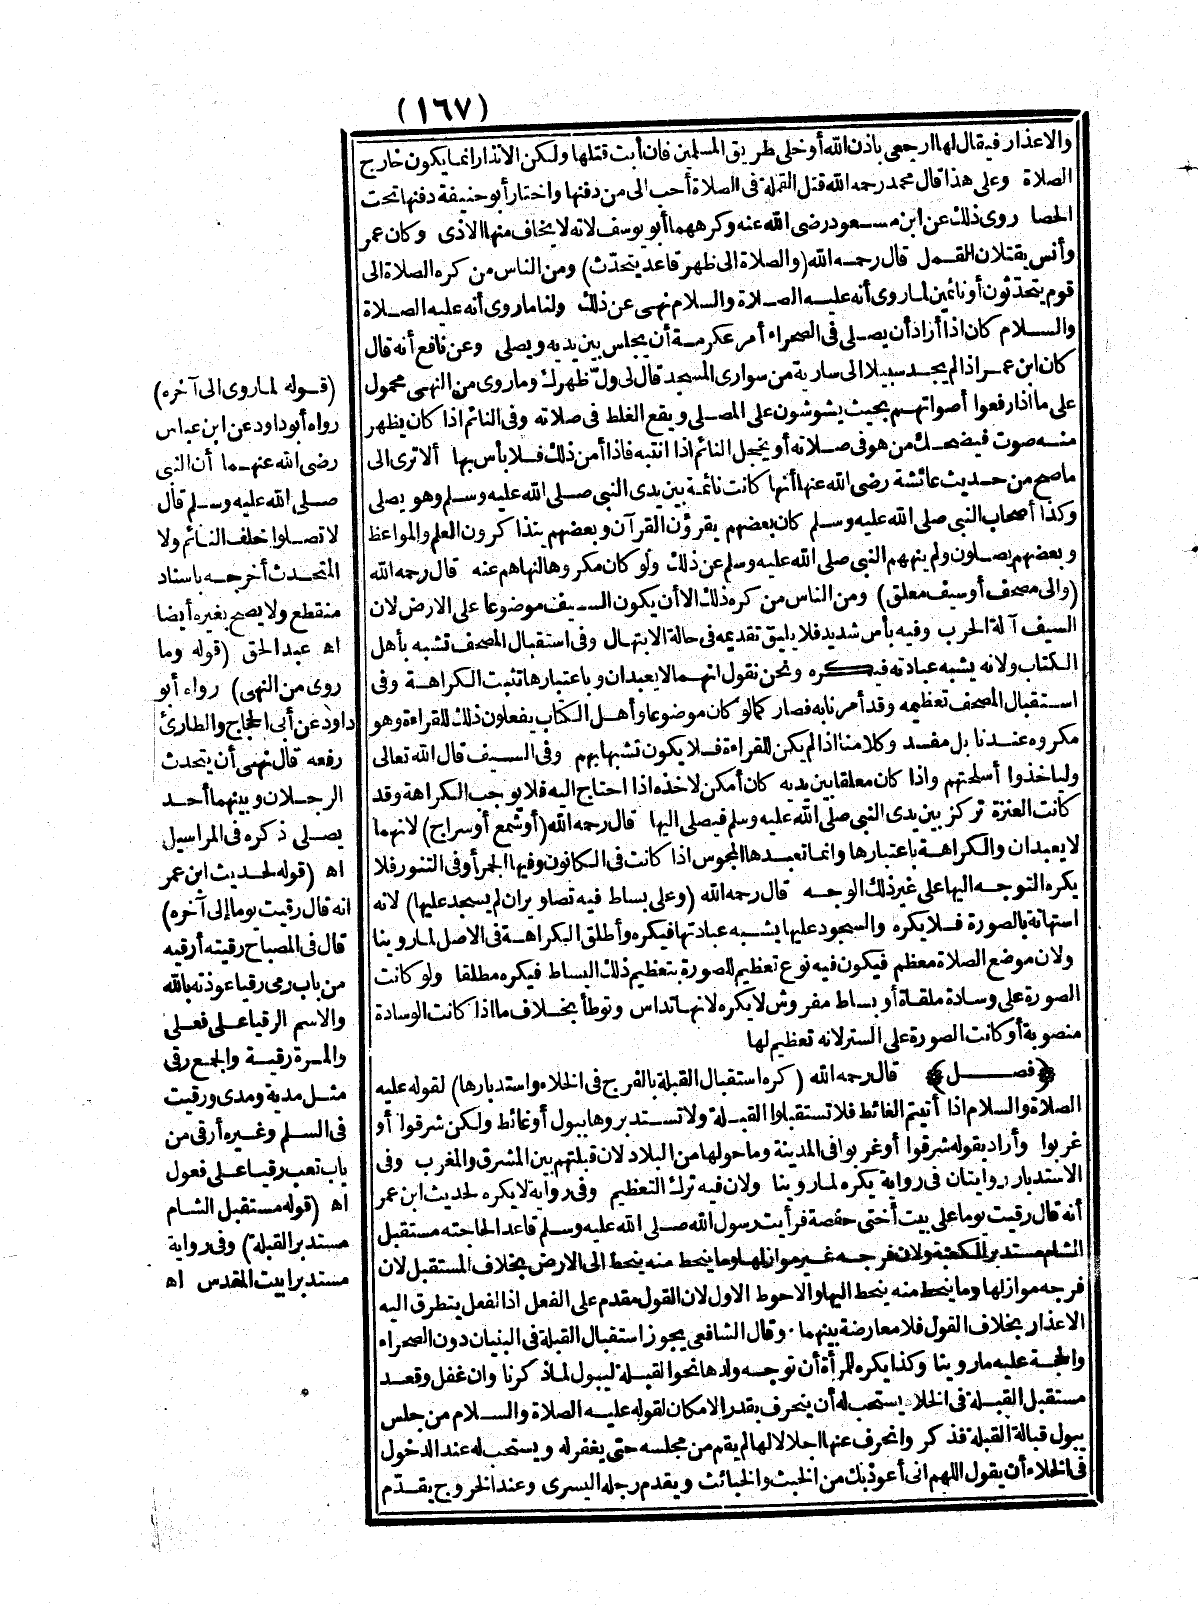 (١٦٧)
والاعذار فيقال لها ارجعى باذن الله أو خلى طريق المسلمين فان أبت قتلها ولكن الانذار انما يكون خارج
الصلاة وعلى هذا قال محمد رحمه الله قتل القملة فى الصلاة أحب الى من دفنها واختار أبو حنيفة دفنها تحت
الحصا روى ذلك عن ابن مسعود رضى الله عنه وكرههما أبو يوسف لانه لا يخاف منها الاذى وكان عمر
وأنس يقتلان القمل قال رحمه الله (والصلاة الى ظهر قاعد يتحدّث) ومن الناس من كره الصلاة الى
قوم يتحدّثون أو نائمين لما روى أنه عليه الصلاة والسلام نهى عن ذلك ولنا ما روى أنه عليه الصلاة
والسلام كان اذا أراد أن يصلى فى الصحراء أمر عكرمة أن يجلس بين يديه ويصلى وعن نافع أنه قال
كان ابن عمر اذا لم يجد سبيلا الى سارية من سوارى المسجد قال لى ولّ ظهرك وما روى من النهى محمول
على ما اذا رفعوا أصواتهم بحيث يشوشون على المصلى ويقع الغلط فى صلاته وفى النائم اذا كان يظهر
منه صوت فيضحك من هو فى صلاته أو يخجل النائم اذا انتبه فاذا أمن ذلك فلا بأس بها ألا ترى الى
ما صح من حديث عائشة رضى الله عنها أنها كانت نائمة بين يدى النبى صلى الله عليه وسلم وهو يصلى
وكذا أصحاب النبى صلى الله عليه وسلم كان بعضهم يقرؤن القرآن وبعضهم يتذاكرون العلم والمواعظ
وبعضهم يصلون ولم ينههم النبى صلى الله عليه وسلم عن ذلك ولو كان مكروها لنهاهم عنه قال رحمه الله
(والى مصحف أو سيف معلق) ومن الناس من كره ذلك الا أن يكون السيف موضوعا على الارض لان
السيف آلة الحرب وفيه بأس شديد فلا يليق تقديمه فى حالة الابتهال وفى استقبال المصحف تشبه بأهل
الكتاب ولانه يشبه عبادته فيكره ونحن نقول انهما لا يعبدان وباعتبارها تثبت الكراهة وفى
استقبال المصحف تعظيمه وقد أمرنا به فصار كما لو كان موضوعا وأهل الكتاب يفعلون ذلك للقراءة وهو
مكروه عندنا بل مفسد وكلامنا اذا لم يكن للقراءة فلا يكون تشبها بهم وفى السيف قال الله تعالى
وليأخذوا أسلحتهم واذا كان معلقا بين يديه كان أمكن لاخذه اذا احتاج اليه فلا يوجب الكراهة وقد
كانت العنزة تركز بين يدى النبى صلى الله عليه وسلم فيصلى اليها قال رحمه الله (أو شمع أو سراج) لانهما
لا يعبدان والكراهة باعتبارها وانما تعبدها المجوس اذا كانت فى الكانون وفيها الجمر أو فى التنور فلا
يكره التوجه اليها على غير ذلك الوجه قال رحمه الله (وعلى بساط فيه تصاوير ان لم يسجد عليها) لانه
استهانة بالصورة فلا يكره والسجود عليها يشبه عبادتها فيكره وأطلق الكراهة فى الاصل لما روينا
ولان موضع الصلاة معظم فيكون فيه نوع تعظيم للصورة بتعظيم ذلك البساط فيكره مطلقا ولو كانت
الصورة على وسادة ملقاة أو بساط مفروش لا يكره لانها تداس وتوطأ بخلاف ما اذا كانت الوسادة
منصوبة أو كانت الصورة على الستر لانه تعظيم لها
﴿فصل﴾ قال رحمه الله (كره استقبال القبلة بالفرج فى الخلاء واستدبارها) لقوله عليه
الصلاة والسلام اذا أتيتم الغائط فلا تستقبلوا القبلة ولا تستدبروها ببول أو غائط ولكن شرقوا أو
غربوا وأراد بقوله شرقوا أو غربوا فى المدينة وما حولها من البلاد لان قبلتهم بين المشرق والمغرب وفى
الاستدبار روايتان فى رواية يكره لما روينا ولان فيه ترك التعظيم وفى رواية لا يكره لحديث ابن عمر
أنه قال رقيت يوما على بيت أختى حفصة فرأيت رسول الله صلى الله عليه وسلم قاعدا لحاجته مستقبل
الشام مستدبر الكعبة ولان فرجه غير مواز لها وما ينحط منه ينحط الى الارض بخلاف المستقبل لان
فرجه مواز لها وما ينحط منه ينحط اليها والاحوط الاول لان القول مقدم على الفعل اذ الفعل يتطرق اليه
الاعذار بخلاف القول فلا معارضة بينهما . وقال الشافعى يجوز استقبال القبلة فى البنيان دون الصحراء
والحجة عليه ما روينا وكذا يكره للمرأة أن توجه ولدها نحو القبلة ليبول لما ذكرنا وان غفل وقعد
مستقبل القبلة فى الخلاء يستحب له أن ينحرف بقدر الامكان لقوله عليه الصلاة والسلام من جلس
يبول قبالة القبلة فذكر وانحرف عنها اجلالا لها لم يقم من مجلسه حتى يغفر له ويستحب له عند الدخول
فى الخلاء أن يقول اللهم انى أعوذ بك من الخبث والخبائث ويقدم رجله اليسرى وعند الخروج يقدّم
(قوله لما روى الى آخره)
رواه أبو داود عن ابن عباس
رضى الله عنهما أن النبى
صلى الله عليه وسلم قال
لا تصلوا خلف النائم ولا
المتحدث أخرجه باسناد
منقطع ولا يصح بغيره أيضا
اه عبد الحق (قوله وما
روى من النهى) رواه أبو
داود عن أبى الحجاج والطارئ
رفعه قال نهى أن يتحدث
الرجلان وبينهما أحد
يصلى ذكره فى المراسيل
اه (قوله لحديث ابن عمر
انه قال رقيت يوما إلى آخره)
قال فى المصباح رقيته أرقيه
من باب رمى رقيا عوذته بالله
والاسم الرقيا على فعلى
والمرة رقية والجمع رقى
مثل مدية ومدى ورقيت
فى السلم وغيره أرقى من
باب تعب رقيا على فعول
اه (قوله مستقبل الشام
مستدبر القبلة) وفى رواية
مستدبرا بيت المقدس اه